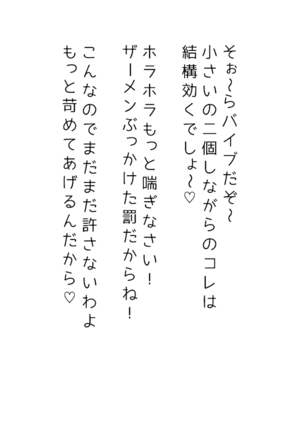 そぉ～らバイブだぞ～
小さいの二個しながらのコレは
結構効くでしょ～♡
ホラホラもっと喘ぎなさい！
ザーメンぶっかけた罰だからね！
こんなのでまだまだ許さないわよ
もっと苛めてあげるんだから♡